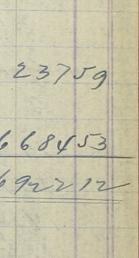 23759
668453
692212